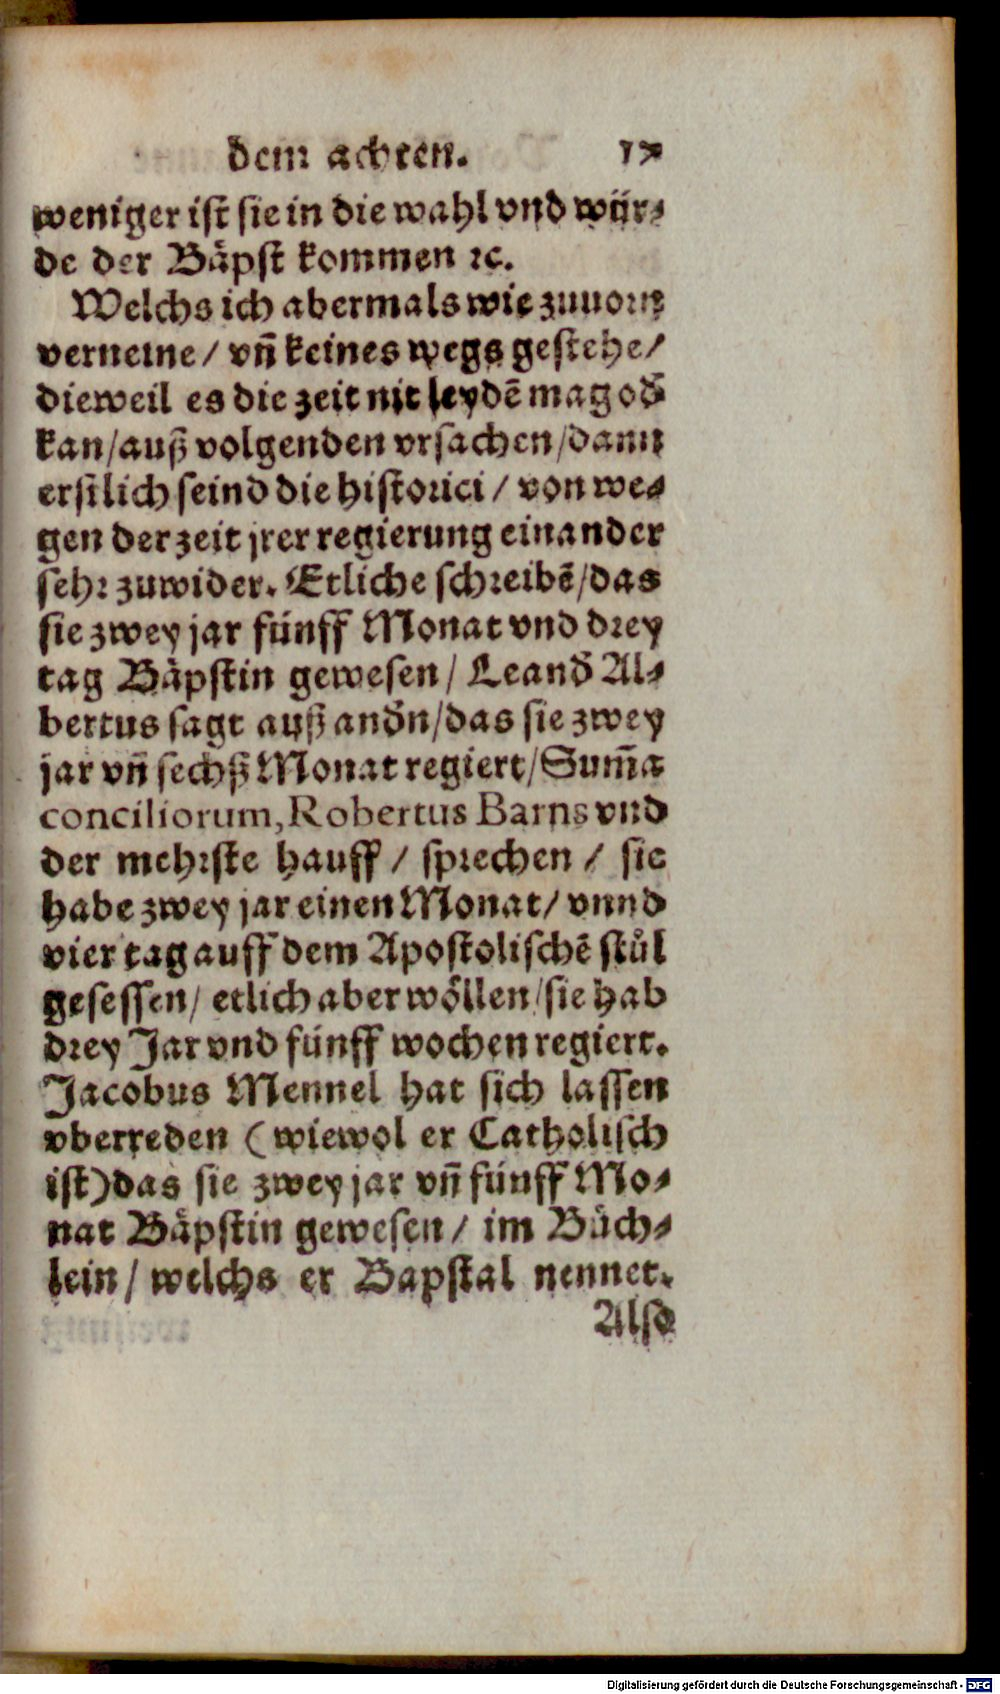 dem achten. 17
weniger ist sie in die wahl vnd wür-
de der Bäpst kommen ꝛc.
Welchs ich abermals wie zuuorn
verneine / vñ keines wegs gestehe /
dieweil es die zeit nit leydẽ mag od̃
kan / auß volgenden vrsachen / dann
erstlich seind die historici / von we-
gen der zeit jrer regierung einander
sehr zuwider. Etliche schreibẽ / das
sie zwey jar fünff Monat vnd drey
tag Bäpstin gewesen / Leand̃ Al-
bertus sagt auß and̃n / das sie zwey
jar vñ sechß Monat regiert / Sum̃a
conciliorum, Robertus Barns vnd
der mehrste hauff / sprechen / sie
habe zwey jar einen Monat / vnnd
vier tag auff dem Apostolischẽ stůl
gesessen / etlich aber wöllen / sie hab
drey Jar vnd fünff wochen regiert.
Jacobus Mennel hat sich lassen
vberreden (wiewol er Catholisch
ist) das sie zwey jar vñ fünff Mo-
nat Bäpstin gewesen / im Büch-
lein / welchs er Bapstal nennet.
Also
Digitalisierung gefördert durch die Deutsche Forschungsgemeinschaft - DFG